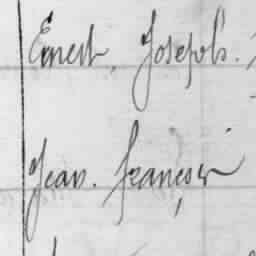 Ernest, Joseph.
Jean. François